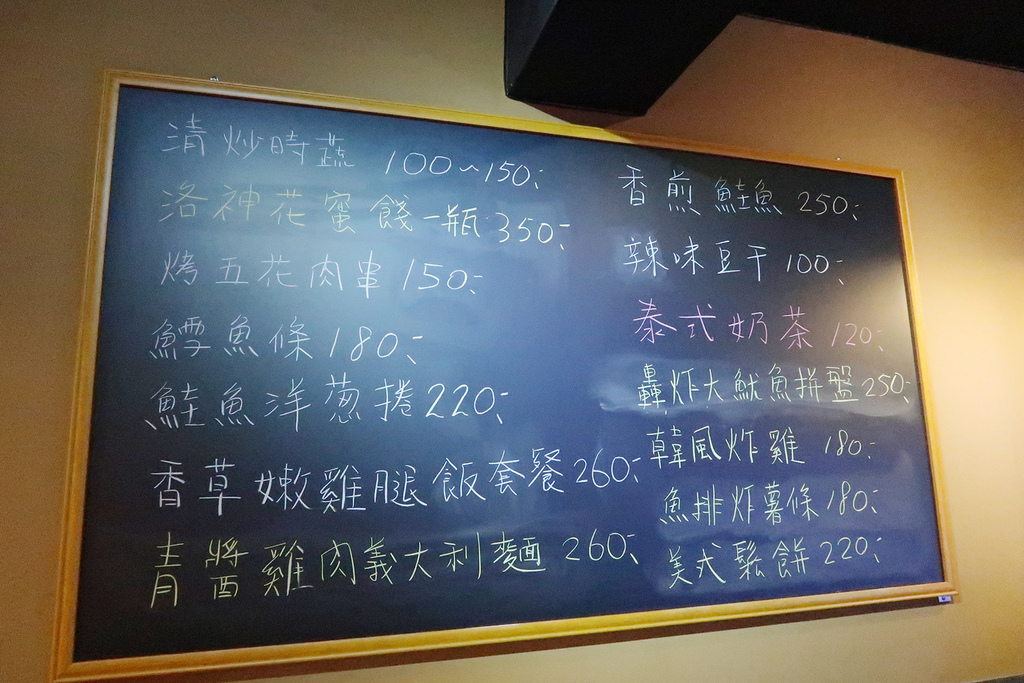 清炒時蔬 100~150:
洛神花蜜餞一瓶 350:
烤五花肉串 150:
鱈魚條 180:
鮭魚洋葱捲 220:
香草嫩雞腿飯套餐 260:
青醬雞肉義大利麵 260:
香煎鮭魚 250:
辣味豆干 100:
泰式奶茶 120:
轟炸大魷魚拼盤 250:
韓風炸雞 180:
魚排炸薯條 180:
美式鬆餅 220: